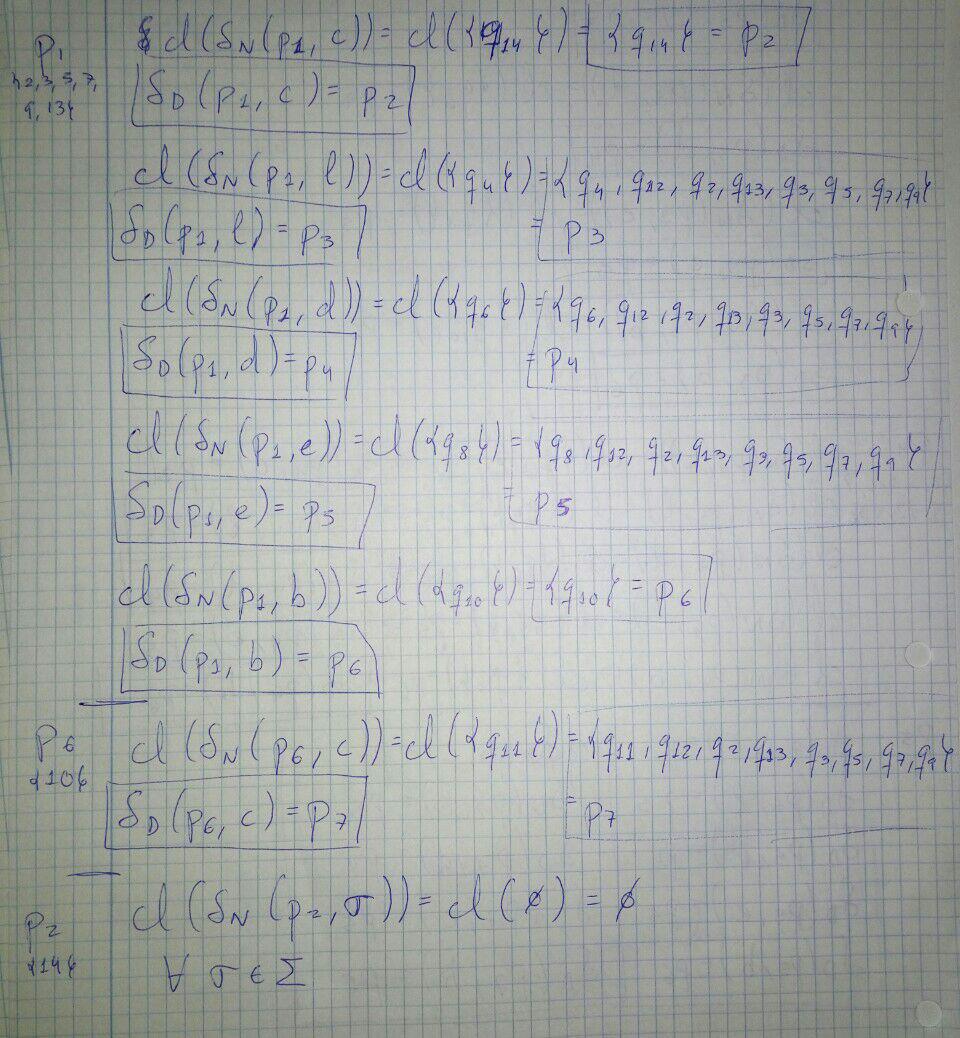 cl(δN(p1, c)) = cl({q14}) = {q14} = p2
p1
{2,3,5,7,
9,13}
δD(p1, c) = p2
cl(δN(p1, l)) = cl({q4}) = {q4, q12, q2, q13, q3, q5, q7, q9}
δD(p1, l) = p3
= p3
cl(δN(p1, d)) = cl({q6}) = {q6, q12, q2, q13, q3, q5, q7, q9}
δD(p1, d) = p4
= p4
cl(δN(p1, e)) = cl({q8}) = {q8, q12, q2, q13, q3, q5, q7, q9}
δD(p1, e) = p5
= p5
cl(δN(p1, b)) = cl({q10}) = {q10} = p6
δD(p1, b) = p6
p6
{10}
cl(δN(p6, c)) = cl({q11}) = {q11, q12, q2, q13, q3, q5, q7, q9}
δD(p6, c) = p7
= p7
p2
{14}
cl(δN(p2, σ)) = cl(∅) = ∅
∀ σ ∈ Σ